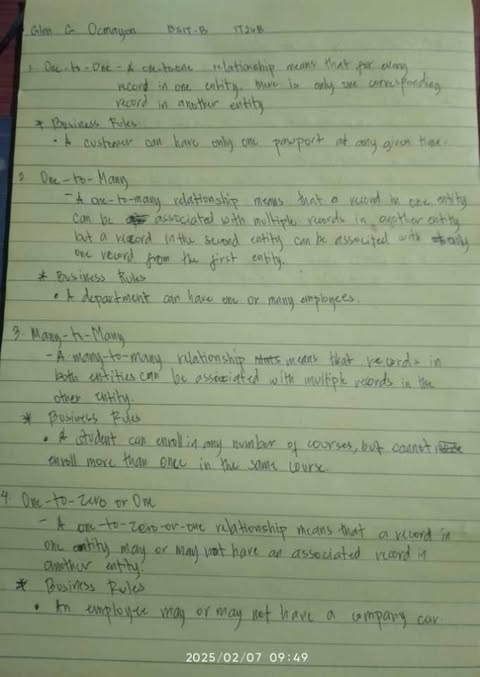 Glen G Ocmayon BSIT-B IT2UB
1. One-to-One - A one-to-one relationship means that for every
record in one entity, there is only one corresponding
record in another entity
* Business Rules
• A customer can have only one passport at any given time.
2. One-to-Many
- A one-to-many relationship means that a record in one entity
can be associated with multiple records in another entity
but a record in the second entity can be associted with only
one record from the first entity.
* Business Rules
• A department can have one or many employees.
3. Many-to-Many
- A many-to-many relationship means that records in
both entities can be associated with multiple records in the
other entity.
* Business Rules
• A student can enroll in any number of courses, but cannot
enroll more than once in the same course.
4. One-to-zero or One
- A one-to-zero-or-one relationship means that a record in
one entity may or may not have an associated record in
another entity.
* Business Rules
• An employee may or may not have a company car
2025/02/07 09:49